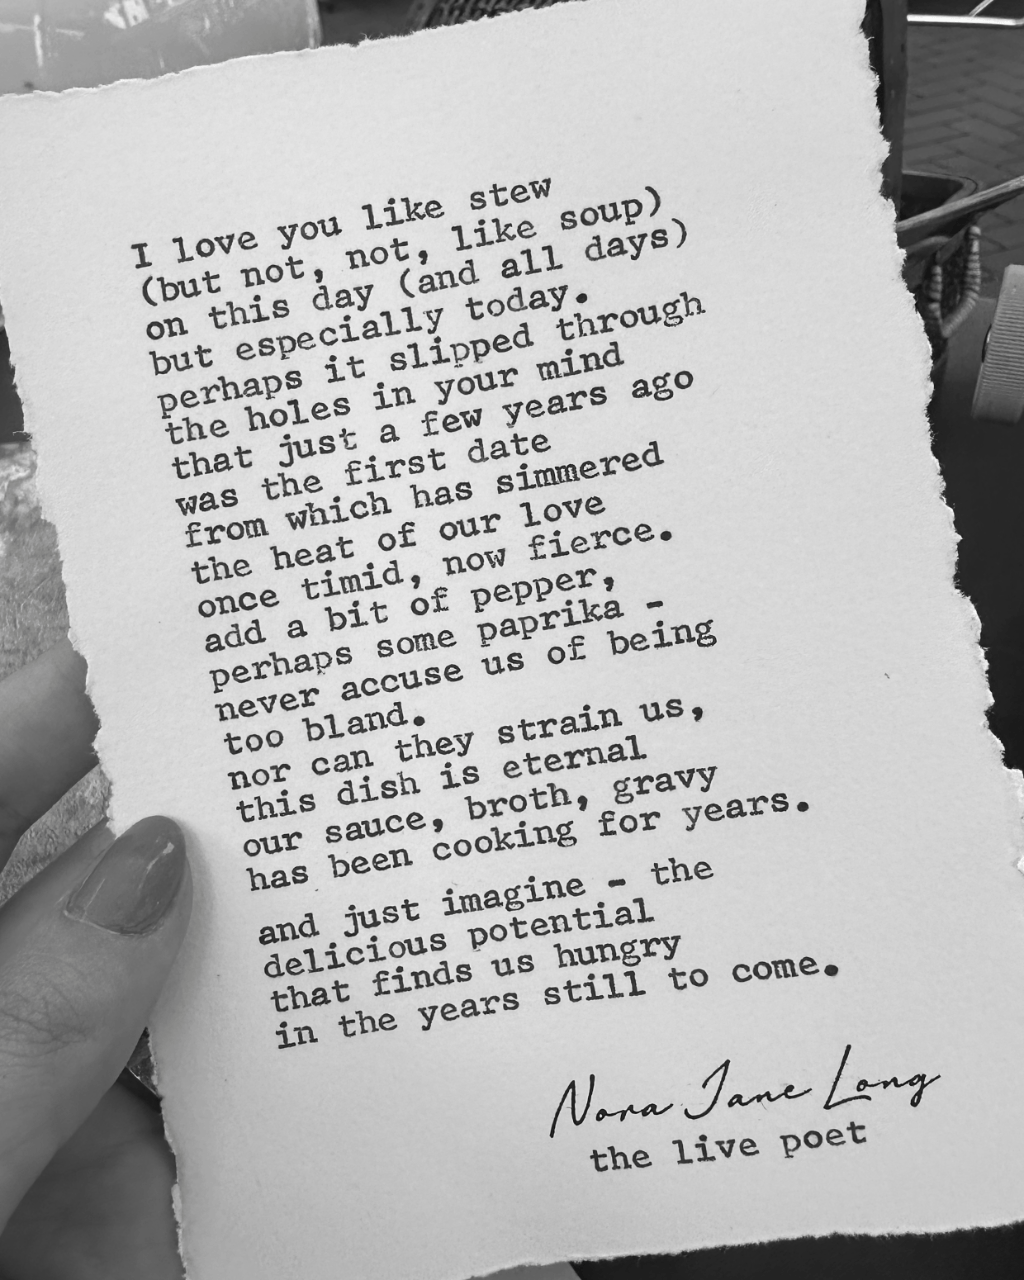 I love you like stew
(but not, not, like soup)
on this day (and all days)
but especially today.
perhaps it slipped through
the holes in your mind
that just a few years ago
was the first date
from which has simmered
the heat of our love
once timid, now fierce.
add a bit of pepper,
perhaps some paprika -
never accuse us of being
too bland.
nor can they strain us,
this dish is eternal
our sauce, broth, gravy
has been cooking for years.
and just imagine - the
delicious potential
that finds us hungry
in the years still to come.
Nora Jane Long
the live poet